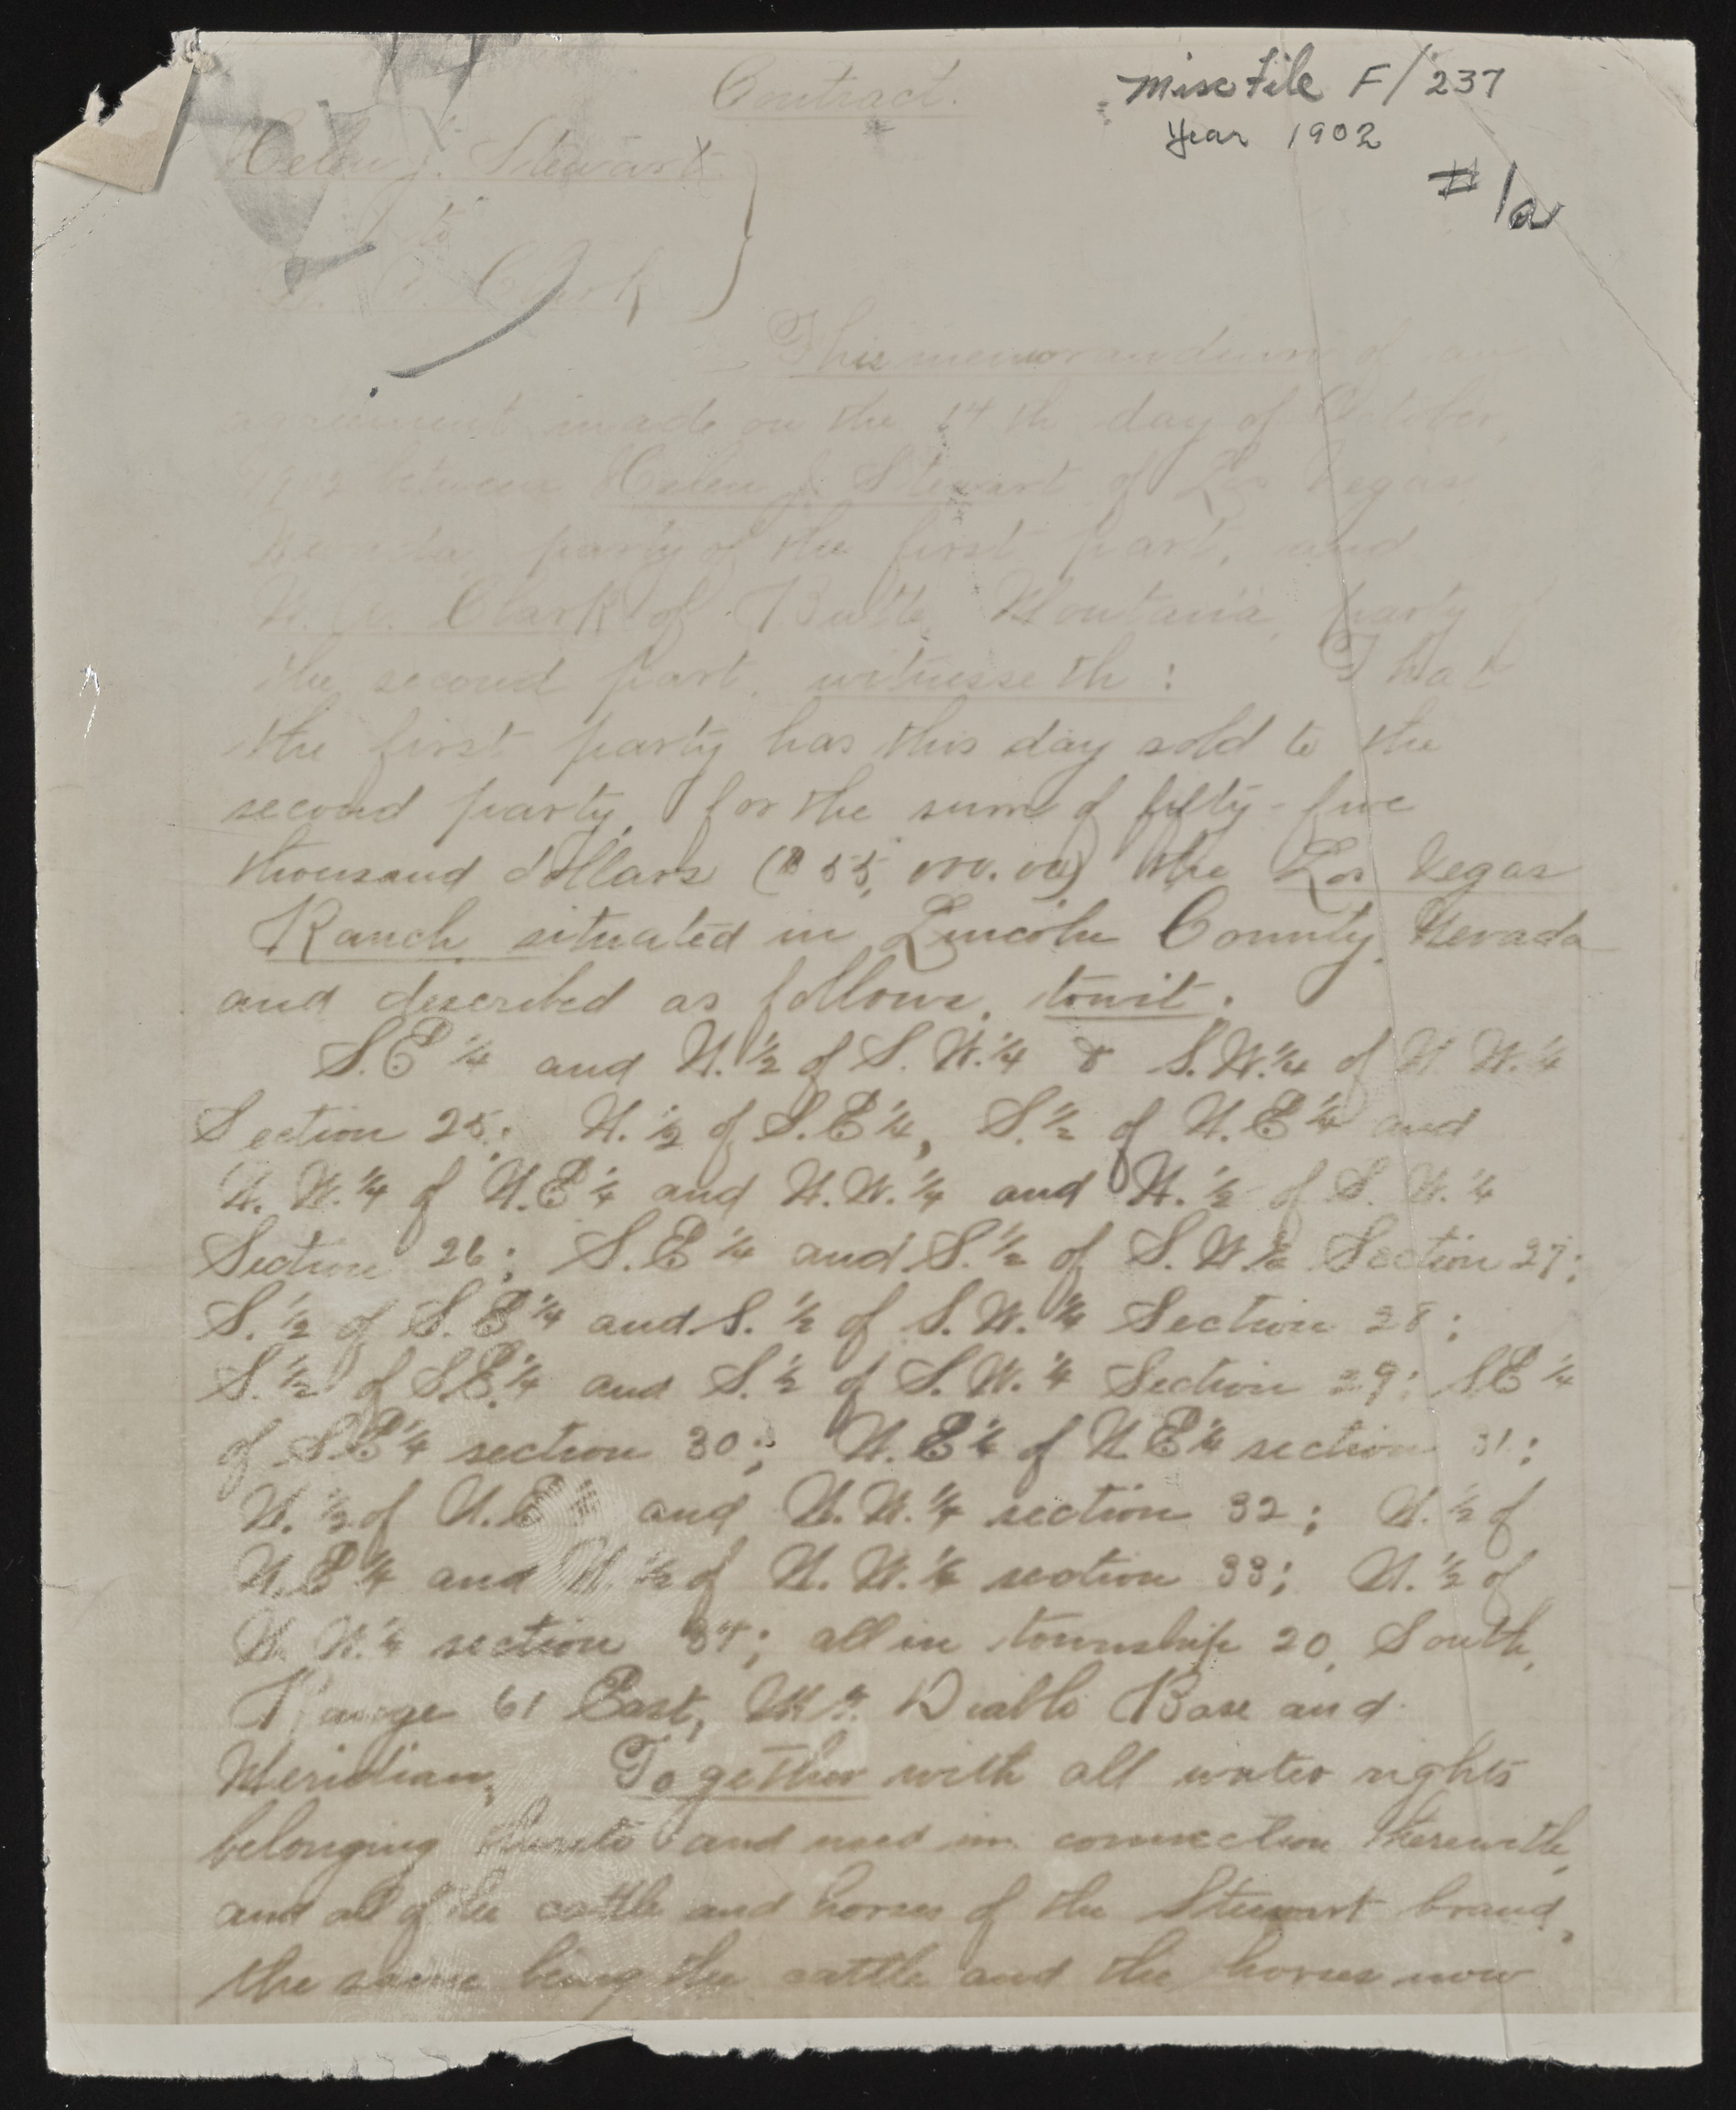 Contract.
Misc File F/237
Year 1902
#1a
Helen J. Stewart
to
W. A. Clark
This memorandum of an
agreement made on the 14th day of October,
1902 between Helen J. Stewart of Las Vegas,
Nevada, party of the first part, and
W. A. Clark of Butte, Montana, party of
the second part, witnesseth: That
the first party has this day sold to the
second party, for the sum of fifty-five
thousand dollars ($55,000.00) the Los Vegas
Ranch, situated in Lincoln County, Nevada
and described as follows, towit:
S.E ¼ and N.½ of S.W.¼ & S.W.¼ of N.W.¼
Section 25; N.½ of S.E¼, S.½ of N.E¼ and
N.W.¼ of N.E¼ and N.W.¼ and N.½ of S.W.¼
Section 26; S.E¼ and S.½ of S.W.¼ Section 27;
S.½ of S.E¼ and S.½ of S.W.¼ Section 28;
S.½ of S.E.¼ and S.½ of S.W.¼ Section 29; S.E¼
of S.E¼ section 30; N.E¼ of N.E¼ section 31;
N.½ of N.E¼ and N.W.¼ section 32; N.½ of
N.E¼ and N.½ of N.W.¼ section 33; N.½ of
N.W.¼ section 34; all in township 20, South,
Range 61 East, Mt. Diablo Base and
Meridian, Together with all water rights
belonging thereto and used in connection therewith,
and all of the cattle and horses of the Stewart brand,
the same being the cattle and the horses now